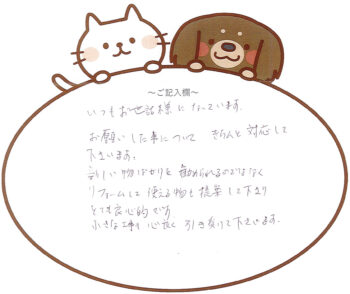 ～ご記入欄～
いつもお世話様になっています。
お願いした事について きちんと対応して
下さいます。
新しい物ばかりを勧められるのではなく
リフォームして使える物も提案して下さり
とても良心的です
小さな工事も心良く引き受けて下さいます。